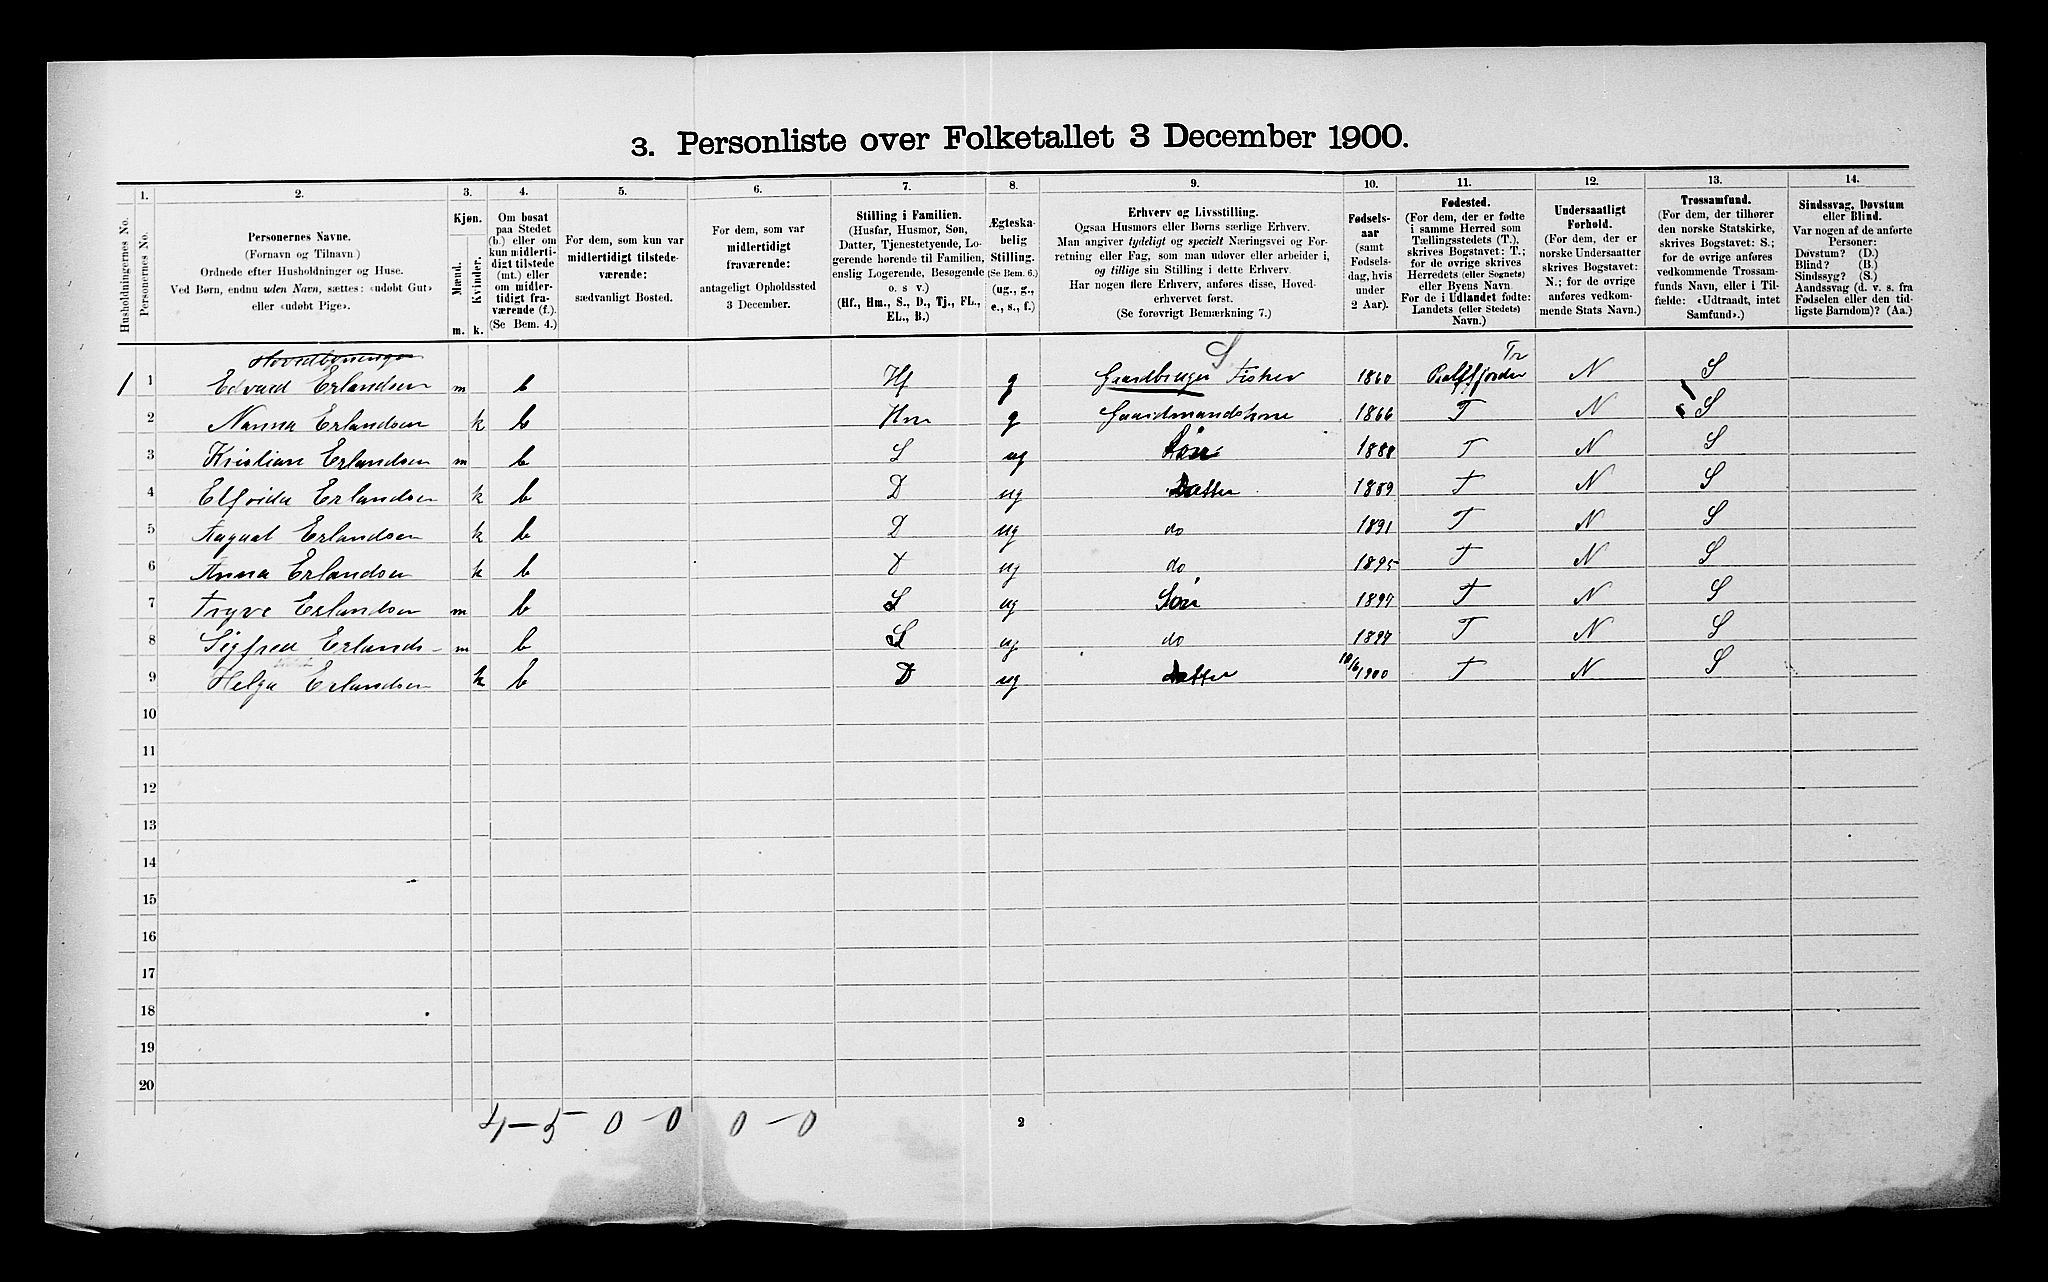 3. Personliste over Folketallet 3 December 1900.
1. 2. 3. 4. 5. 6. 7. 8. 9. 10. 11. 12. 13. 14.
Husholdningernes No.
Personernes No.
Personernes Navne.
(Fornavn og Tilnavn)
Ordnede efter Husholdninger og Huse.
Ved Børn, endnu uden Navn, sættes: «udøbt Gut»
eller «udøbt Pige».
Kjøn.
Mænd.
Kvinder.
m. k.
Om bosat
paa Stedet
(b.) eller om
kun midlerti-
digt tilstede
(mt.) eller
om midler-
tidigt fra-
værende (f.).
(Se Bem. 4.)
For dem, som kun var
midlertidigt tilstede-
værende:
sædvanligt Bosted.
For dem, som var
midlertidigt
fraværende:
antageligt Opholdssted
3 December.
Stilling i Familien.
(Husfar, Husmor, Søn,
Datter, Tjenestetyende, Lo-
gerende hørende til Familien,
enslig Logerende, Besøgende
o. s v.)
(Hf., Hm., S., D., Tj., FL.,
EL., B.)
Ægteska-
belig
Stilling.
(Se Bem. 6.)
(ug., g.,
e., s., f.)
Erhverv og Livsstilling.
Ogsaa Husmors eller Børns særlige Erhverv.
Man angiver tydeligt og specielt Næringsvei og For-
retning eller Fag, som man udøver eller arbeider i,
og tillige sin Stilling i dette Erhverv.
Har nogen flere Erhverv, anføres disse, Hoved-
erhvervet først.
(Se forøvrigt Bemærkning 7.)
Fødsels-
aar
(samt
Fødsels-
dag, hvis
under
2 Aar).
Fødested.
(For dem, der er fødte
i samme Herred som
Tællingsstedets (T.),
skrives Bogstavet: T.;
for de øvrige skrives
Herredets (eller Sognets)
eller Byens Navn.
For de i Udlandet fødte:
Landets (eller Stedets)
Navn.)
Undersaatligt
Forhold.
(For dem, der er
norske Undersaatter
skrives Bogstavet:
N.; for de øvrige
anføres vedkom-
mende Stats Navn.)
Trossamfund.
(For dem, der tilhører
den norske Statskirke,
skrives Bogstavet: S.;
for de øvrige anføres
vedkommende Trossam-
funds Navn, eller i Til-
fælde: «Udtraadt, intet
Samfund».)
Sindssvag, Døvstum
eller Blind.
Var nogen af de anførte
Personer:
Døvstum? (D.)
Blind? (B.)
Sindssyg? (S.)
Aandssvag (d. v. s. fra
Fødselen eller den tid-
ligste Barndom)? (Aa.)
Hovedbygningen S Tr
1 1 Edvard Erlandsen m b Hf g Gaardbruger Fisker 1860 N S
2 Nanna Erlandsen k b Hm g Gaardmandskone 1866 T N S
3 Kristian Erlandsen m b S ug Søn T N S
4 Elfrida Erlandsen k b D ug Datter 1889 T N S
5 Erlandsen k b D ug do 1891 T N S
6 Anna Erlandsen k b D ug do 1895 T N S
7 Trygve Erlandsen m b S ug Søn 1897 T N S
8 Sigfred Erlands- m b S ug do T N S
9 Helga Erlandsen k b D ug datter 10/6 1900 T N S
10
11
12
13
14
15
16
17
18
19
20
4 – 5 0 – 0 0 – 0
2